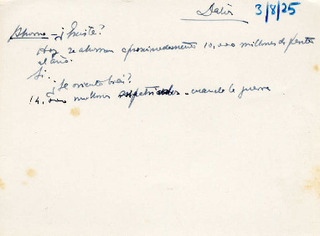 Datos 3/8/25
Ahorro - ¿Existe?
Hoy se ahorran aproximadamente 10,000 millones de pesetas
al año.
Si ¿se orienta bien?
14. millones - cuando la guerra